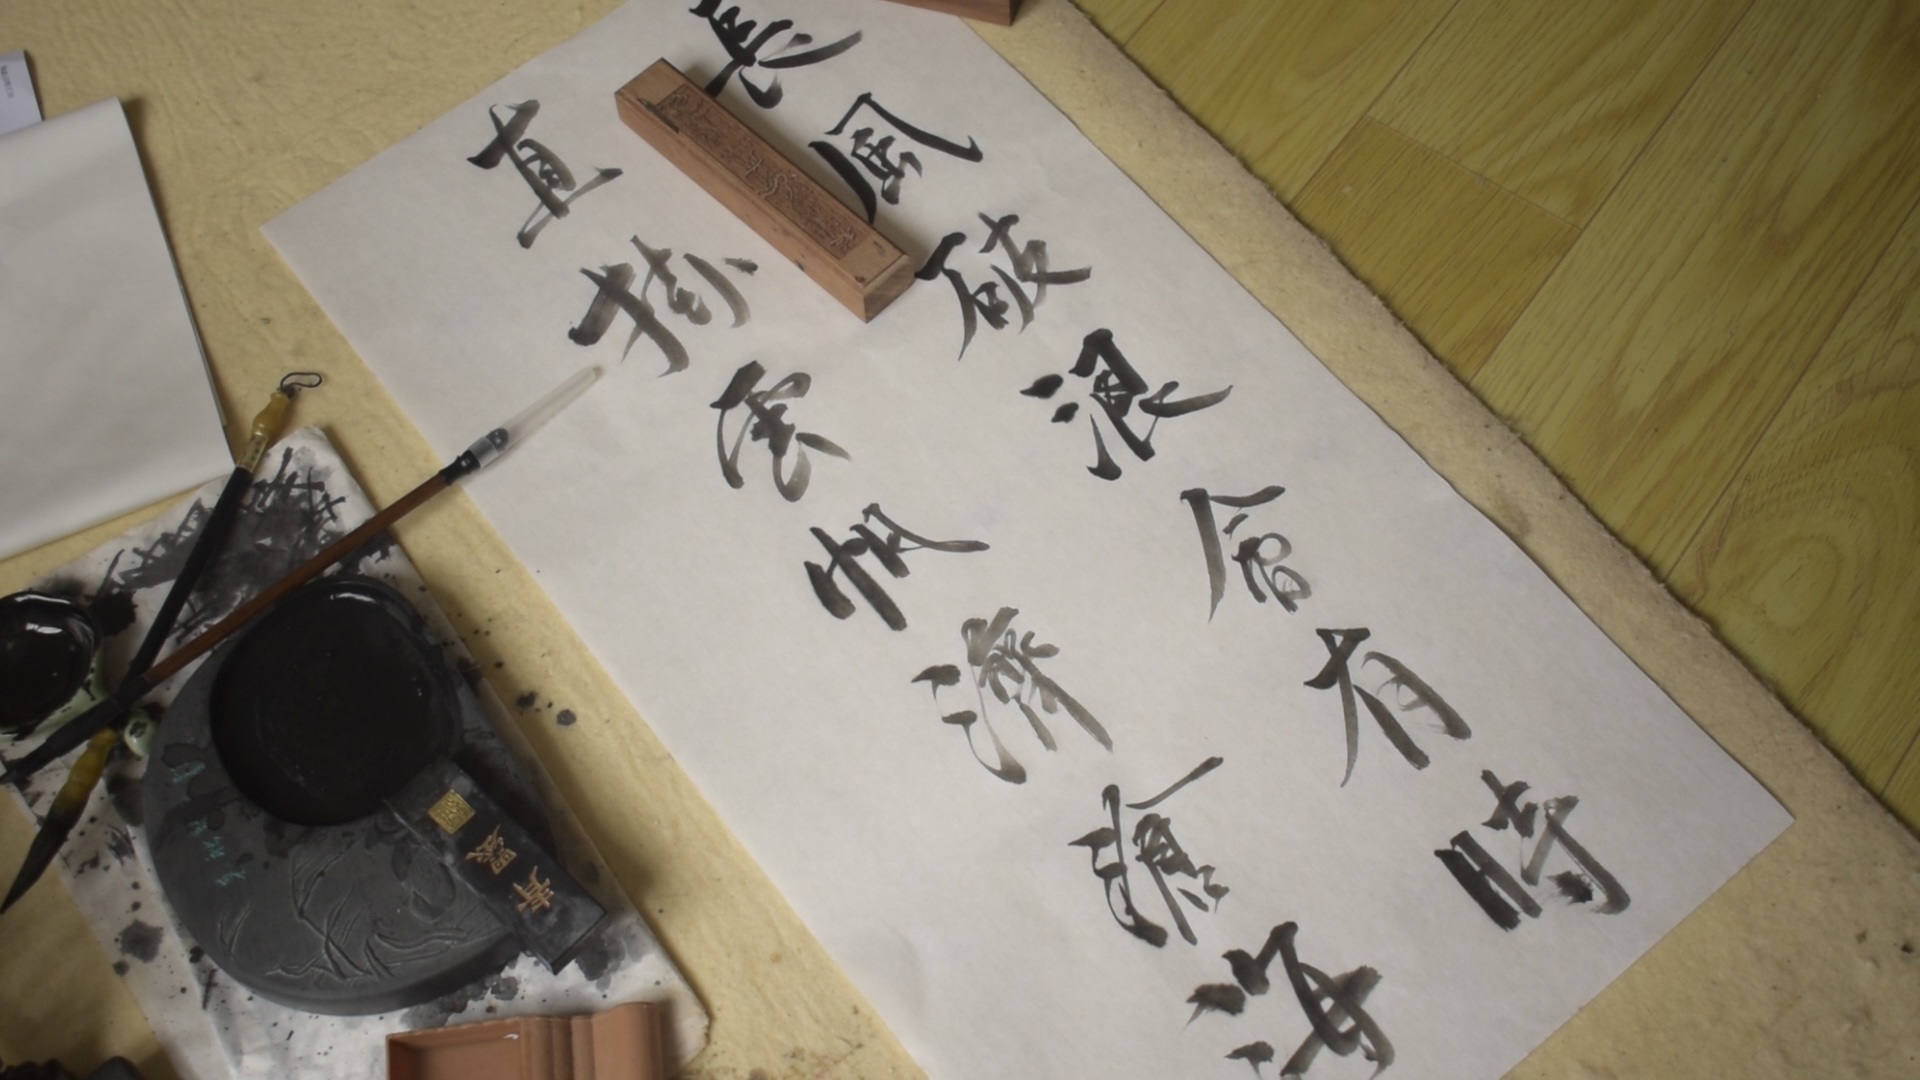 長風破浪會有時
直掛雲帆濟滄海
青墨